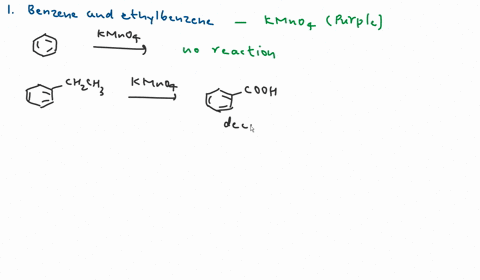 1. Benzene and ethylbenzene — KMnO4 (Purple)
KMnO4
no reaction
CH2CH3 KMnO4 COOH
dec